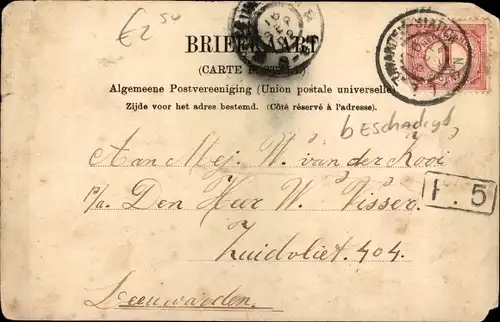 €2,50
BRIEFKAART
(CARTE POSTALE)
Algemeene Postvereeniging (Union postale universelle)
Zijde voor het adres bestemd. (Côté réservé à l'adresse).
1
bEschadigd
Aan Mej. W. van der Kooi
p/a. Den Heer W. Visser.
F. 5
Zuidvliet. 404.
Leeuwarden.